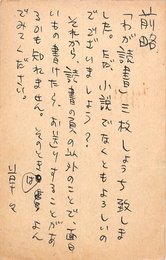 前略
「わが読書」三枚しょうち致しま
した。ただ、小説でなくともよろしいの
でございましょう?
それから、読書の以外のことで、面白
いもの書けたら、お送りすることがあ
るかも知れません。そのときは よん
でみてください。
草々